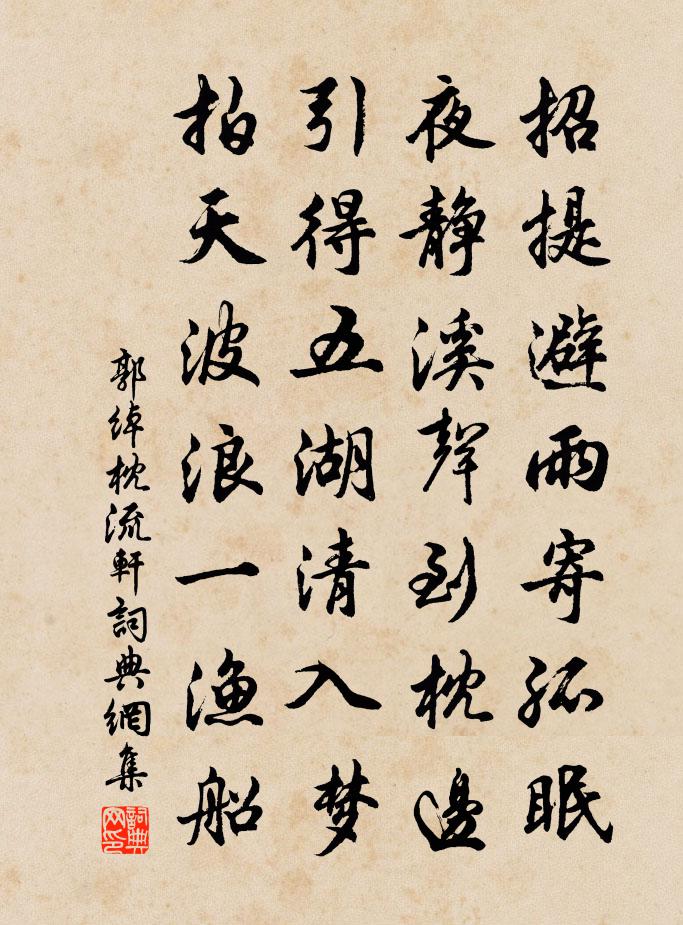 招提避雨寄孤眠
夜静溪聲到枕邊
引得五湖清入梦
拍天波浪一漁船
郭綽枕流軒詞典網集
詞典网印